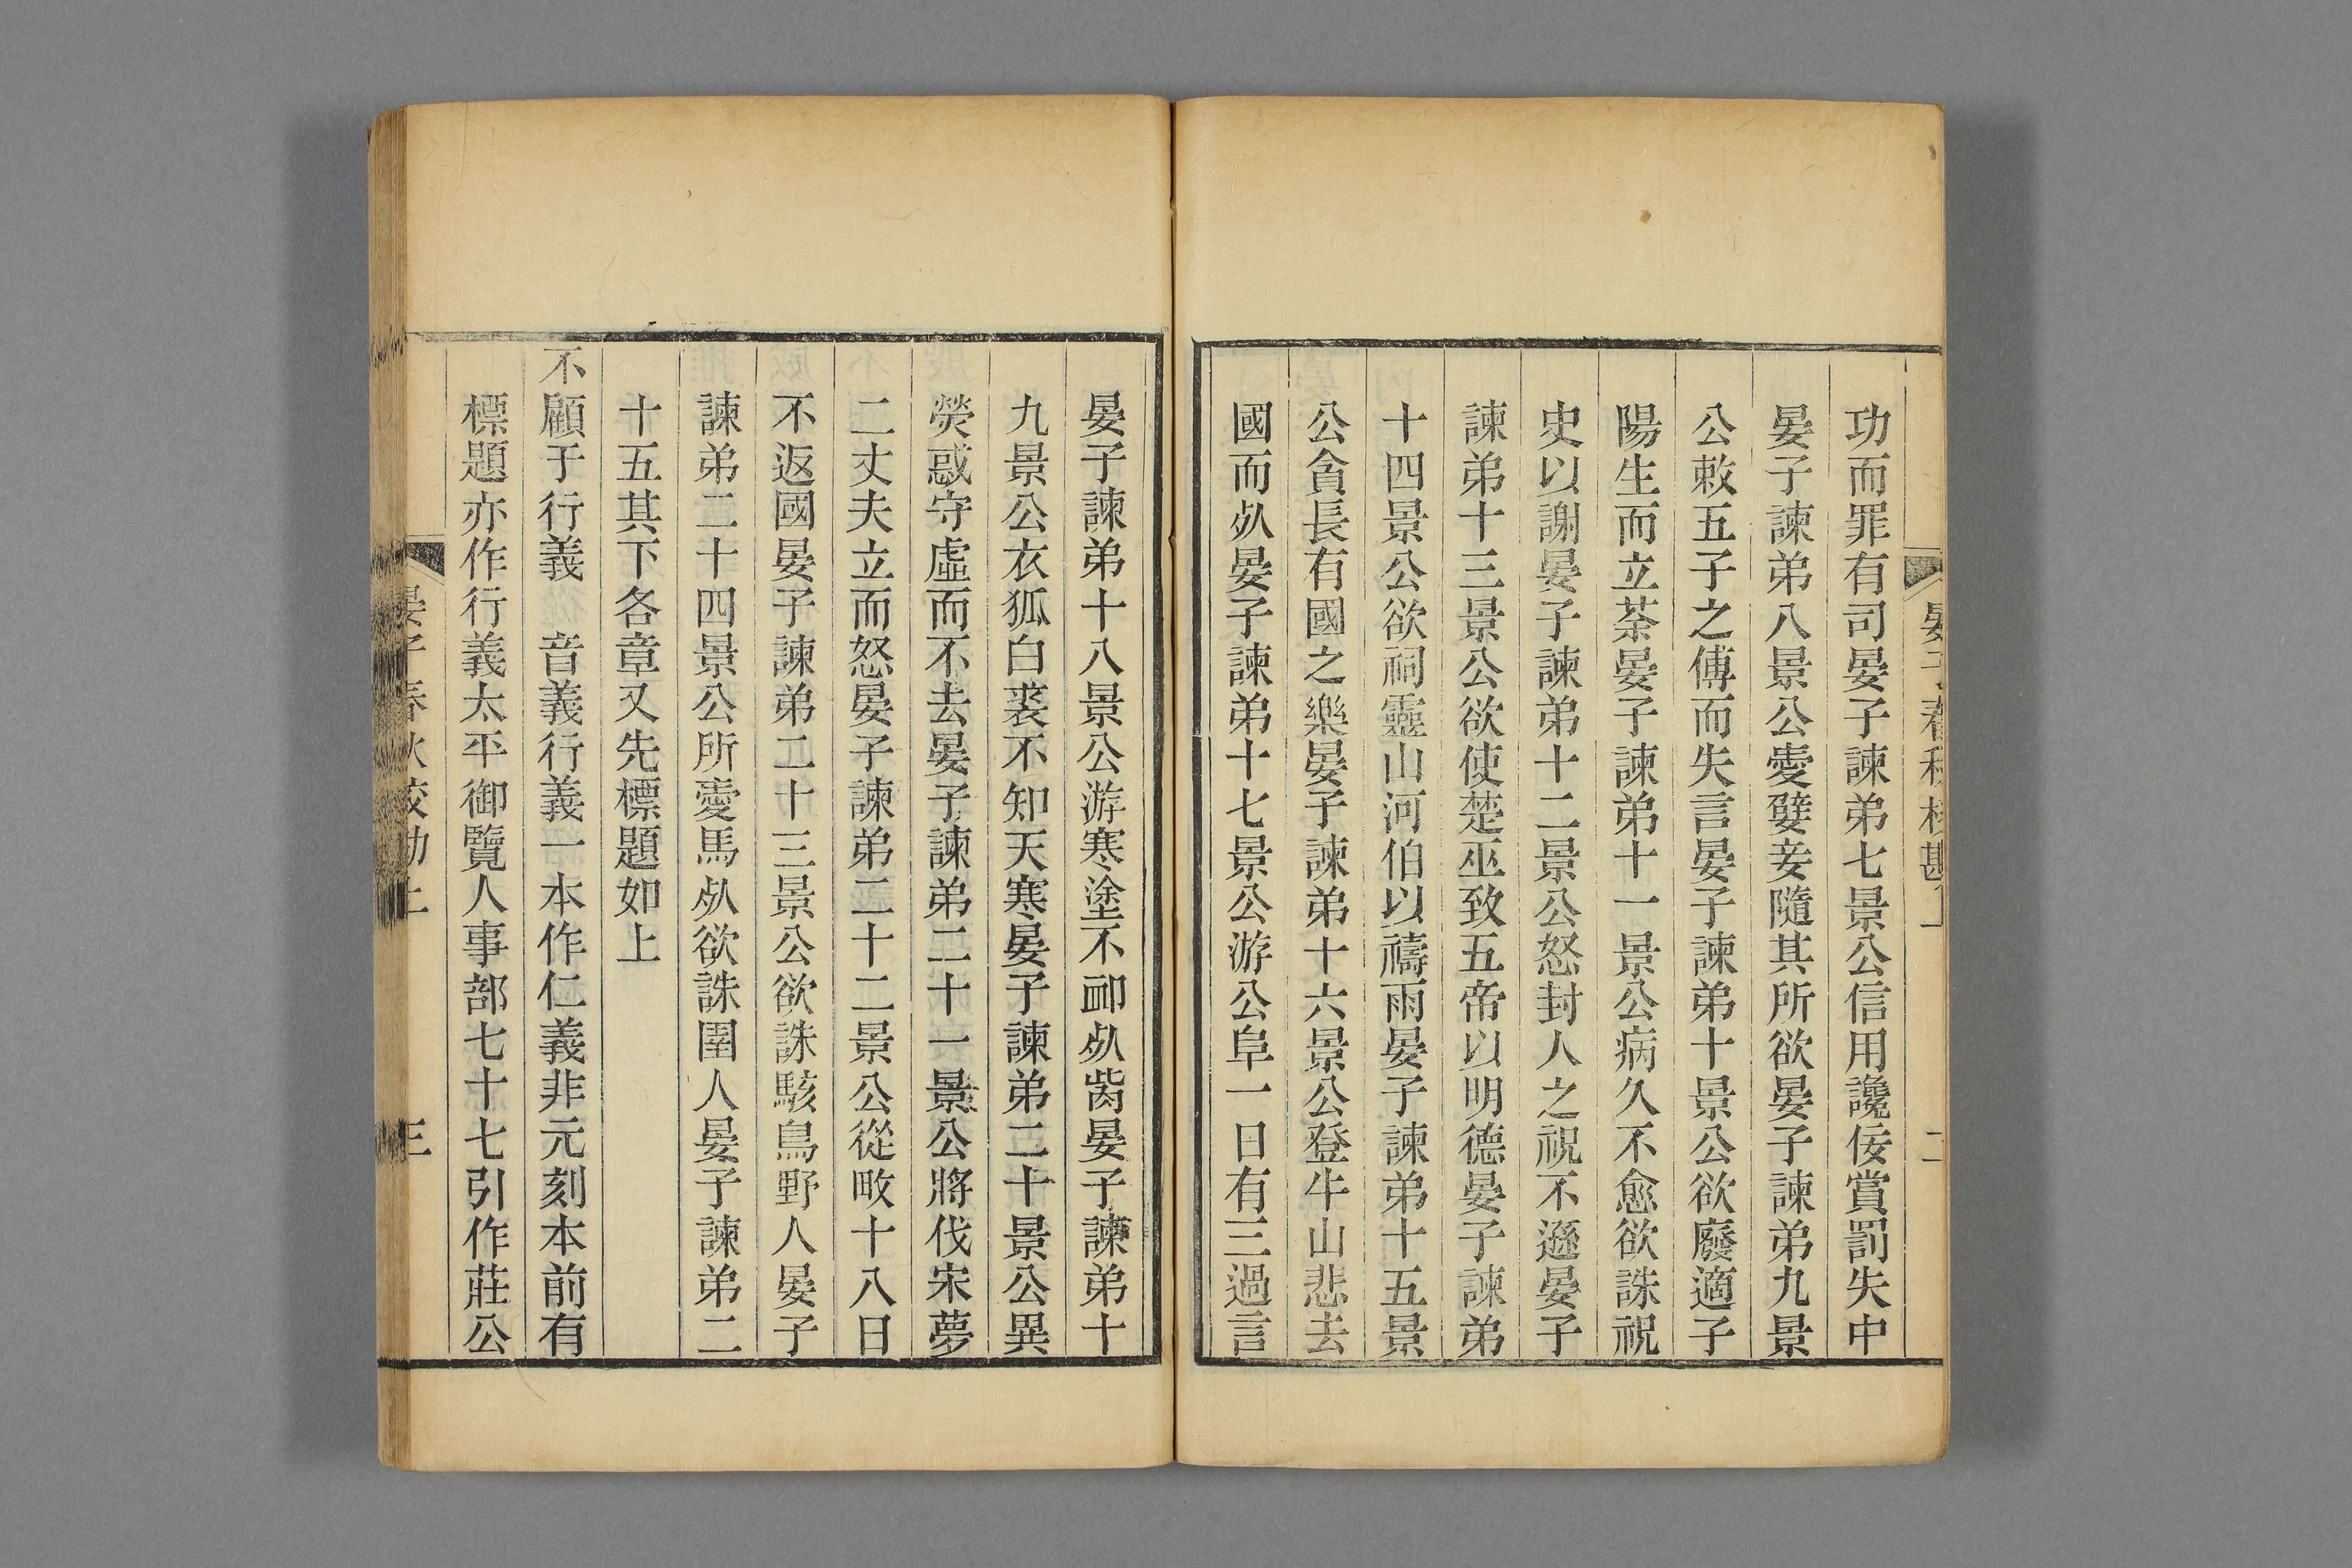 功而罪有司晏子諫弟七景公信用讒佞賞罰失中
晏子諫弟八景公愛嬖妾隨其所欲晏子諫弟九景
公敕五子之傅而失言晏子諫弟十景公欲廢適子
陽生而立荼晏子諫弟十一景公病久不愈欲誅祝
史以謝晏子諫弟十二景公怒封人之祝不遜晏子
諫弟十三景公欲使楚巫致五帝以明德晏子諫弟
十四景公欲祠靈山河伯以禱雨晏子諫弟十五景
公貪長有國之樂晏子諫弟十六景公登牛山悲去
國而𣦸晏子諫弟十七景公游公阜一日有三過言
晏子諫弟十八景公游寒塗不卹𣦸胔晏子諫弟十
九景公衣狐白裘不知天寒晏子諫弟二十景公異
熒惑守虛而不去晏子諫弟二十一景公將伐宋夢
二丈夫立而怒晏子諫弟二十二景公從畋十八日
不返國晏子諫弟二十三景公欲誅駭鳥野人晏子
諫弟二十四景公所愛馬𣦸欲誅圉人晏子諫弟二
十五其下各章又先標題如上
不顧于行義 音義行義一本作仁義非元刻本前有
標題亦作行義太平御覽人事部七十七引作莊公
晏子春秋校勘上 三